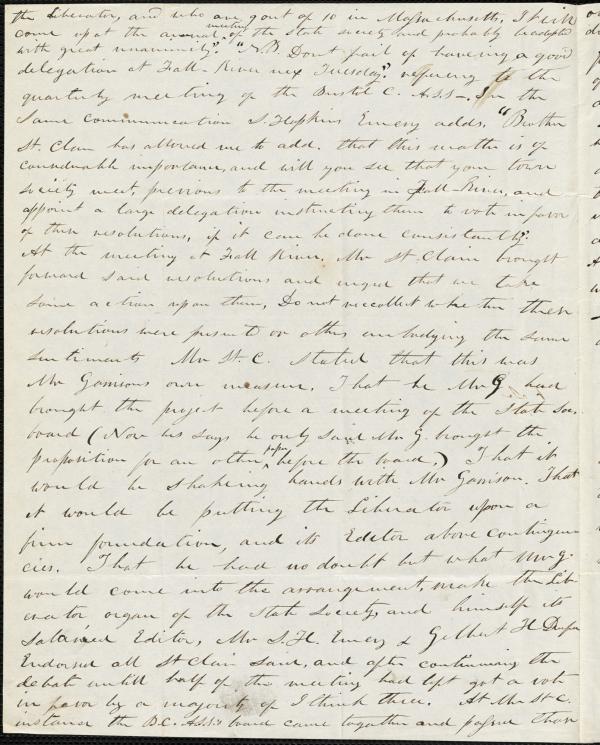 the Liberator, and who are gout of 10 in Massachusetts. I think
come up at the annual meeting of the State society and probably be adopted
with great unanimity". "N.B. Dont fail of having a good
delegation at Fall-River nex Tuesday." refering to the
quarterly meeting of the Bristol C. A.S.S-. In the
Same communication S. Hopkins Emery adds. "Brother
St. Clair has allowed me to add. that this matter is of
considerable importance, and will you see that your town
society meet, previous to the meeting in Fall-River, and
appoint a large delegation instructing them to vote in favor
of these resolutions, if it can be done consistantly".
At the meeting at Fall River. Mr St Clair brought
forward said resolutions and urged that we take
some action upon them, Do not reccollect whether these
resolutions were presented or others embodying the same
sentiments Mr St. C. stated that this was
Mr Garrisons own measure. That he Mr G. had
brought the project before a meeting of the State Soc.
board (Now he says he only said Mr G. brought the
proposition for an other paper before the board.) That it
would be shakeing hands with Mr Garrison. That
it would be putting the Liberator upon a
firm foundation, and its Editor above contingen
cies. That he had no doubt but what Mr G.
would come into the arrangement, make the Lib-
erator organ of the State Society, and himself its
Salaried Editor, Mr S. H. Emery & Gilbert H
Endorsed all St Clair said, and after continuing the
debate untill half of the meeting had left got a vote
in favor by a majority of I think three. At Mr St C.
instance the B.C. A.S.S. board came together and passed